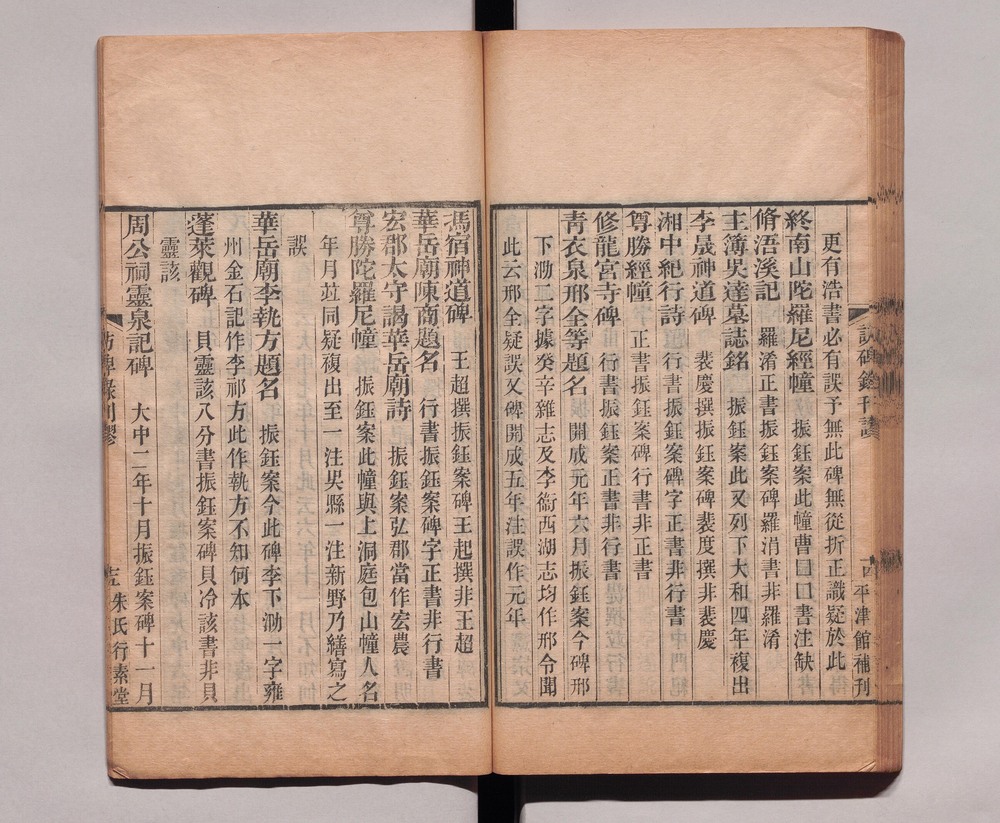 更有浩書必有誤予無此碑無從折正識疑於此
終南山陀羅尼經幢　振鈺案此幢曹囗囗書注缺
脩浯溪記　羅淆正書振鈺案碑羅涓書非羅淆
主簿吳達墓誌銘　振鈺案此又列下大和四年複出
李晟神道碑　裴慶撰振鈺案碑裴度撰非裴慶
湘中紀行詩　行書振鈺案碑字正書非行書
尊勝經幢　正書振鈺案碑行書非正書
修龍宮寺碑　行書振鈺案正書非行書
青衣泉邢全等題名　開成元年六月振鈺案今碑邢
下泐二字據癸辛雜志及李衞西湖志均作邢令聞
此云邢全疑誤又碑開成五年注誤作元年
訪碑錄刊謬
十四
平津館補刊
馮宿神道碑　王超撰振鈺案碑王起撰非王超
華岳廟陳商題名　行書振鈺案碑字正書非行書
宏郡太守謁華岳廟詩　振鈺案弘郡當作宏農
尊勝陀羅尼幢　振鈺案此幢與上洞庭包山幢人名
年月竝同疑複出至一注吳縣一注新野乃繕寫之
誤
華岳廟李執方題名　振鈺案今此碑李下泐一字雍
州金石記作李祁方此作執方不知何本
蓬萊觀碑　貝靈該八分書振鈺案碑貝冷該書非貝
靈該
周公祠靈泉記碑　大中二年十月振鈺案碑十一月
訪碑錄刊謬
十五
朱氏行素堂